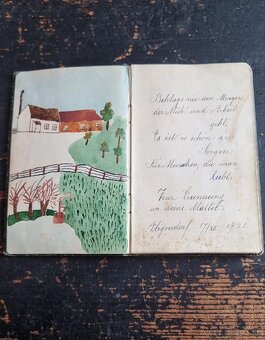 Beklage nie den Morgen
der Müh und Arbeit
gibt,
Es ist so schön zu
Sorgen
Für Menschen, die man
liebt.
Zur Erinnerung
an deine Mutter.
17/ 1931